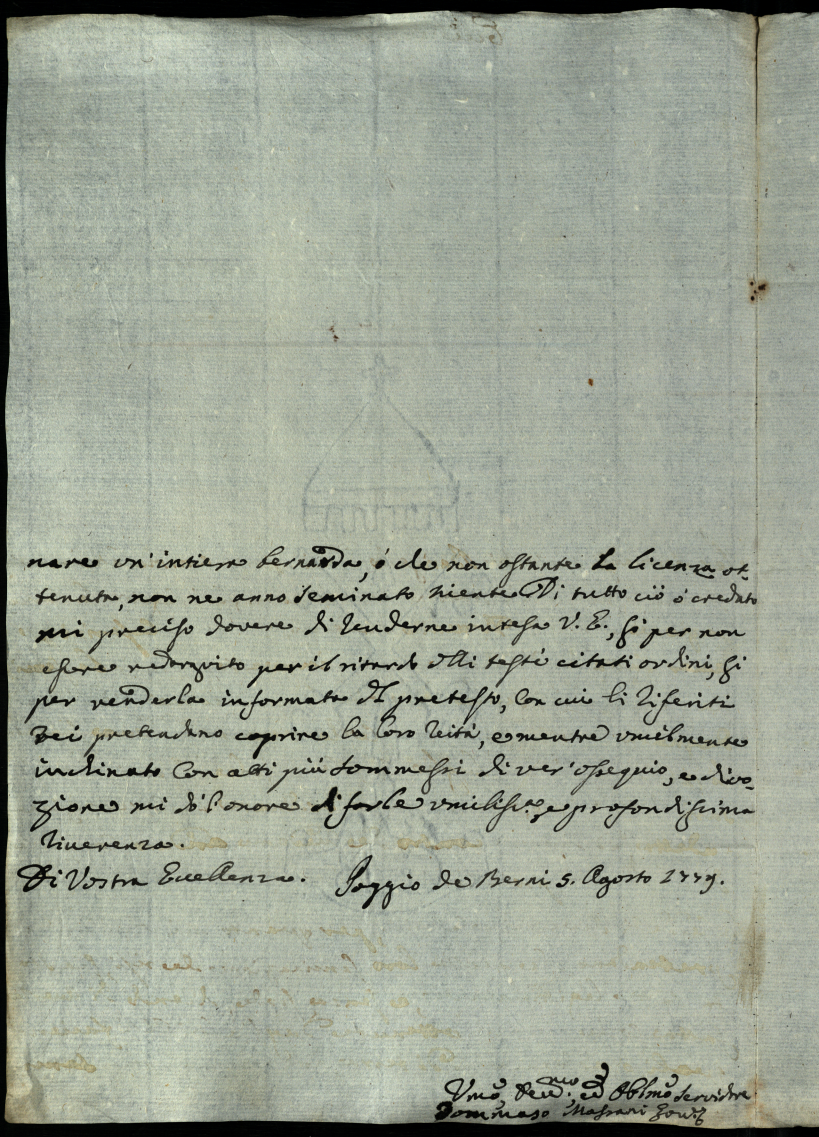 nare un'intiera bernarda, ó che non ostante la licenza ot-
tenuta, non ne anno seminato niente. Di tutto ciò ó creduto
mi preciso dovere di renderne intesa V. E., sì per non
essere redarguito per il ritardo delli testé citati ordini, sì
per renderla informata del pretesto, con cui li riferiti
rei pretendano coprire la loro reità, e mentre umilmente
inclinato con atti più sommessi di ver'ossequio, e divo-
zione mi dò l'onore di farle umilis.ma e profondissima
riverenza.
Di Vostra Eccellenza. Poggio de Berni 5. Agosto 1779.
Umo, Devmo, ed Oblmo Servidore
Tommaso Massani